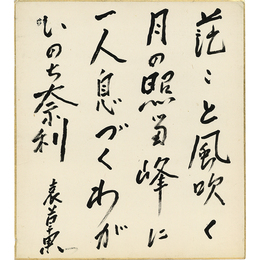 茫々と風吹く
月の照る峰に
一人息づくわが
いのち奈利